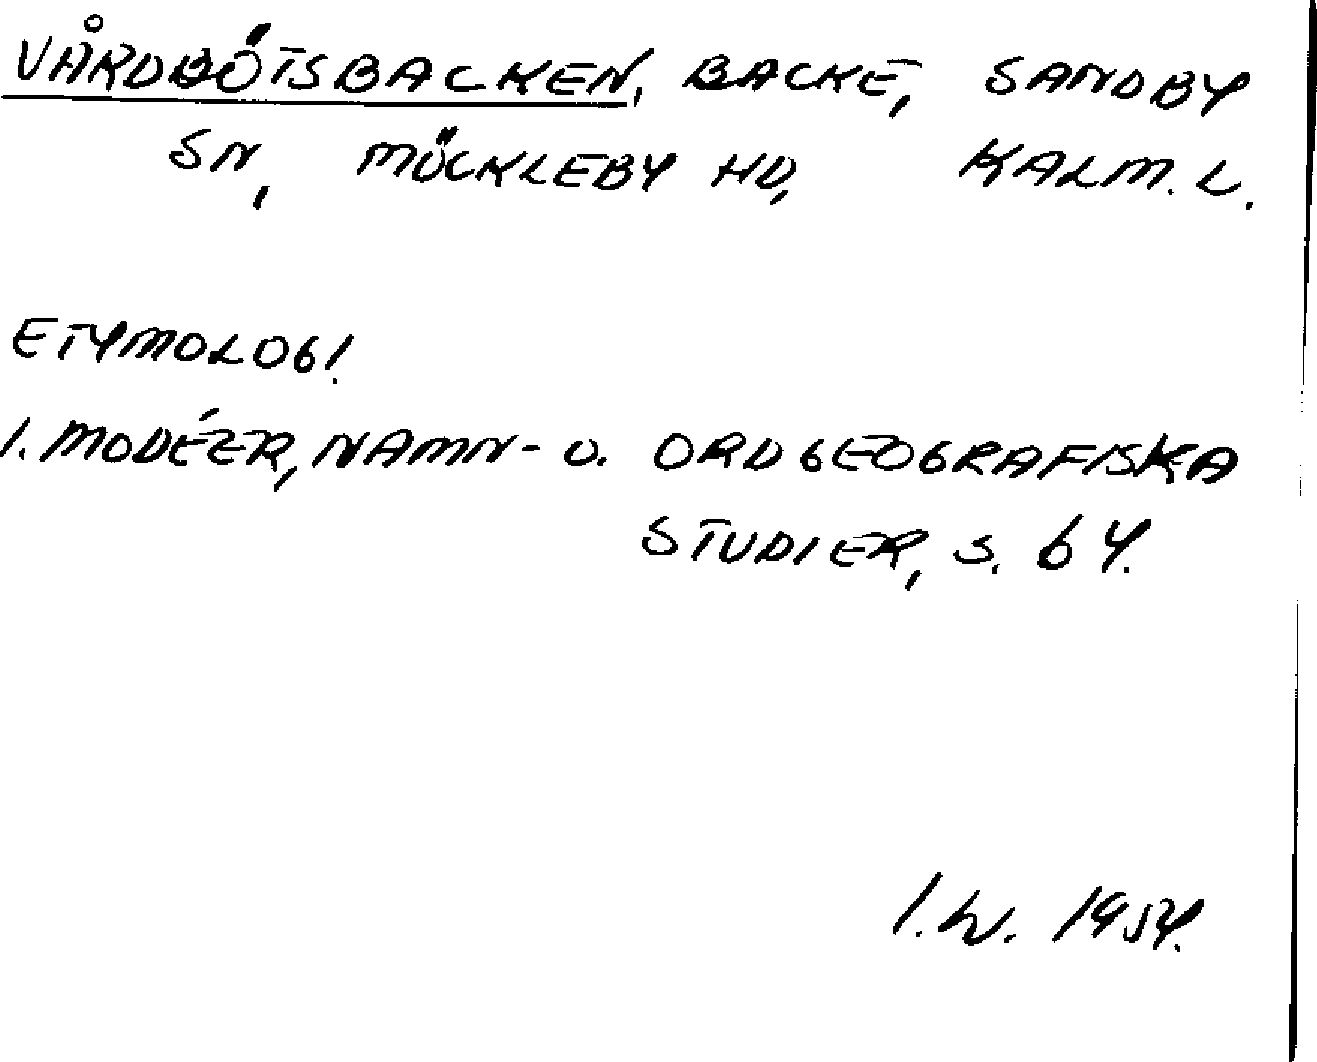 VÅRDBÖTSBACKEN, BACKE, SANDBY
SN, MÖCKLEBY HD, KALM. L.
ETYMOLOG!
I. MODÉER, NAMN- O. ORDGEOGRAFISKA
STUDIER, S. 64.
I.W. 1954.